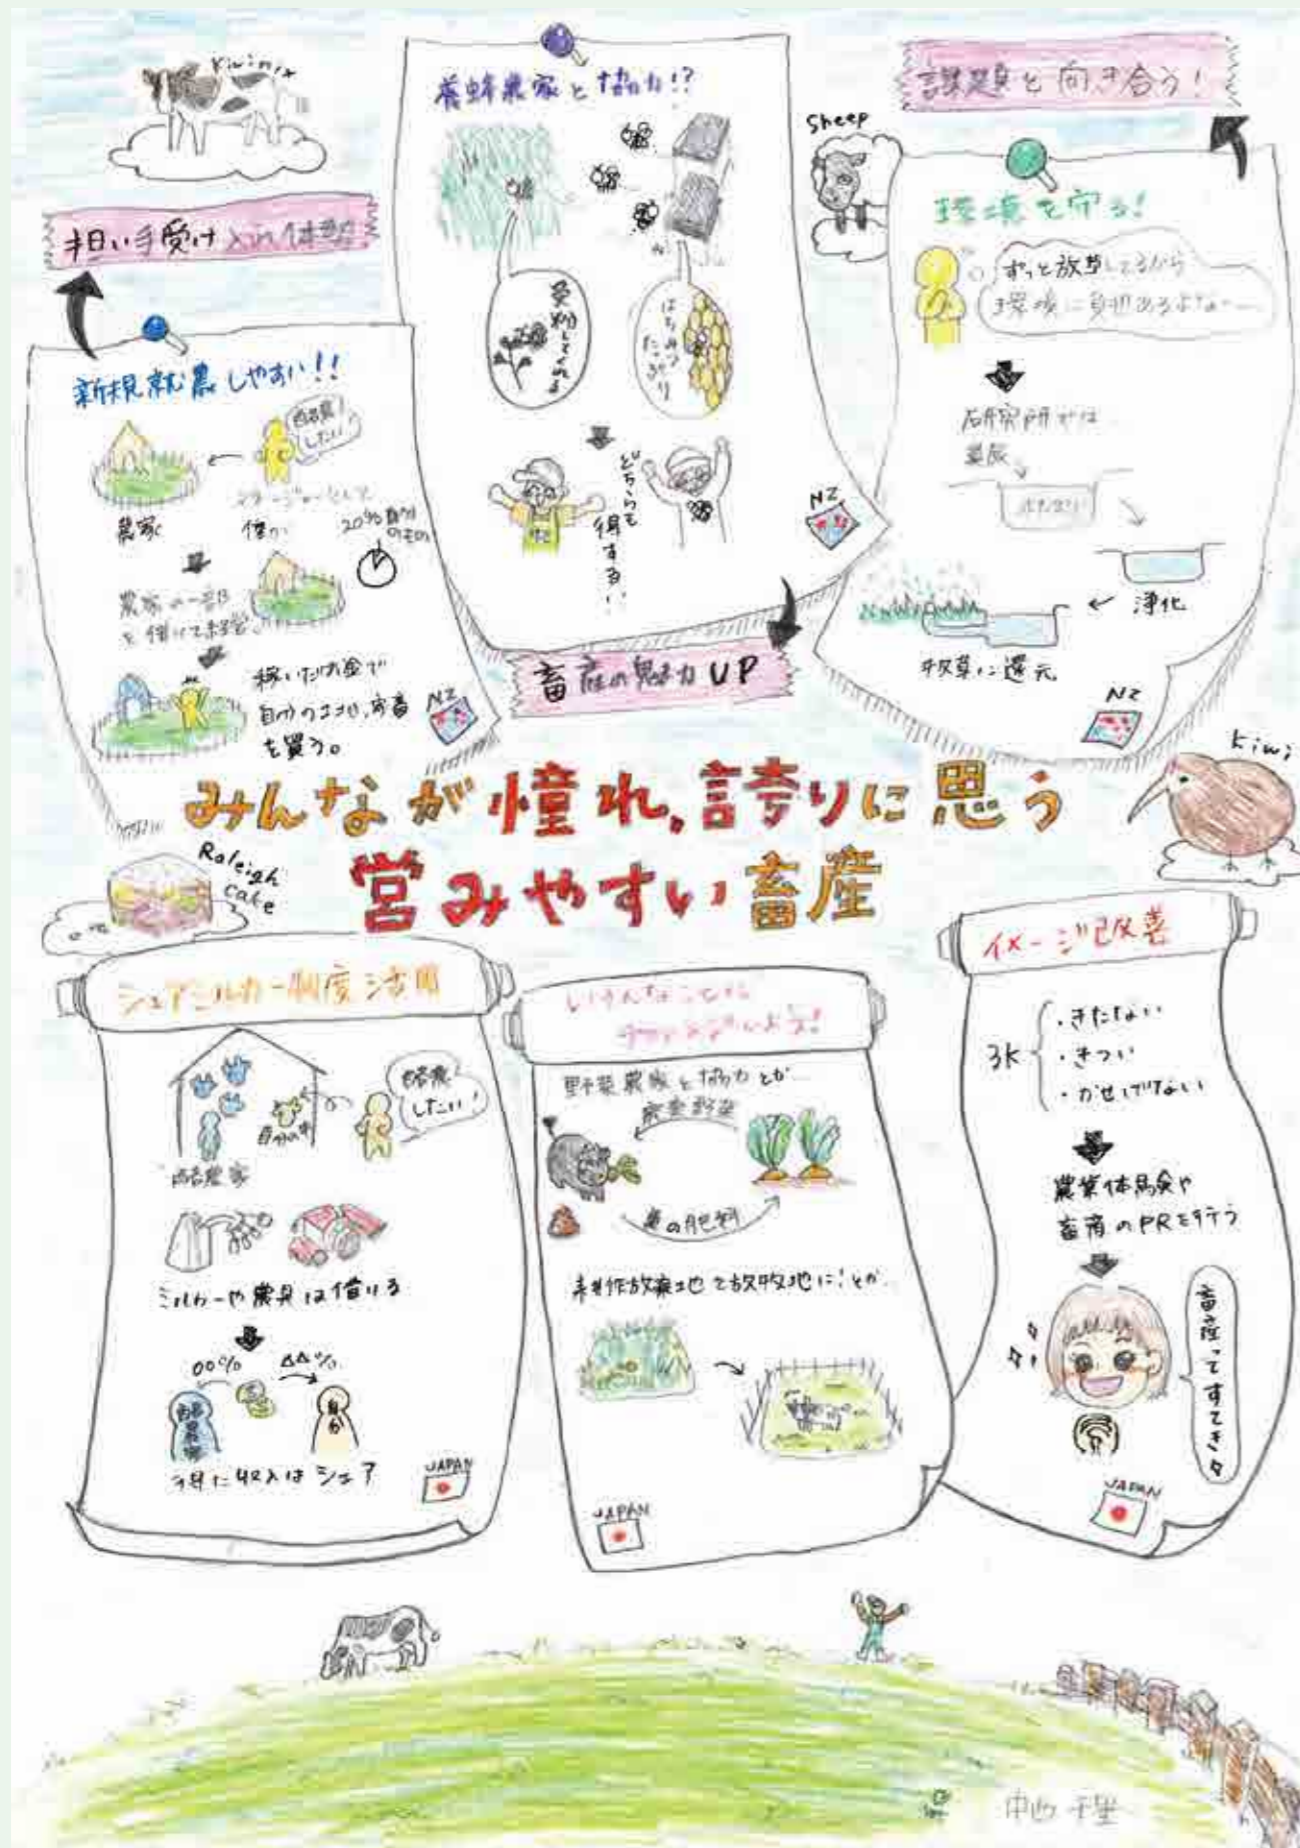 kiwimix
担い手受け入れ体制
新規就農しやすい!!
酪農
したい!
農家
マネージャーとして
働く
20%自分
のもの
農家の一部
を借りて経営。
稼いだお金で
自分の土地、家畜
を買う。
NZ
養蜂農家と協力!?
受粉してくれる
はちみつ
たっぷり
どちらも
得する!!
NZ
畜産の魅力UP
Sheep
課題と向き合う!
環境を守る!
ずっと放草してるから
環境に負担あるよな…
研究所では
糞尿
浄化
牧草に還元
NZ
kiwi
みんなが憧れ、誇りに思う
営みやすい畜産
Raleigh
cake
シェアミルカー制度活用
酪農
したい!
自分の牛
酪農家
ミルカーや農具は借りる
00%
△△%
酪農家
自分
得た収入はシェア
JAPAN
いろんなことに
野菜農家と協力とか…
廃棄野菜
糞の肥料
耕作放棄地を放牧地に!とか…
JAPAN
イメージ改善
3K
・きたない
・きつい
・かせげない
農業体験や
畜産のPRを行う
畜産ってすてき
JAPAN
中西 千里